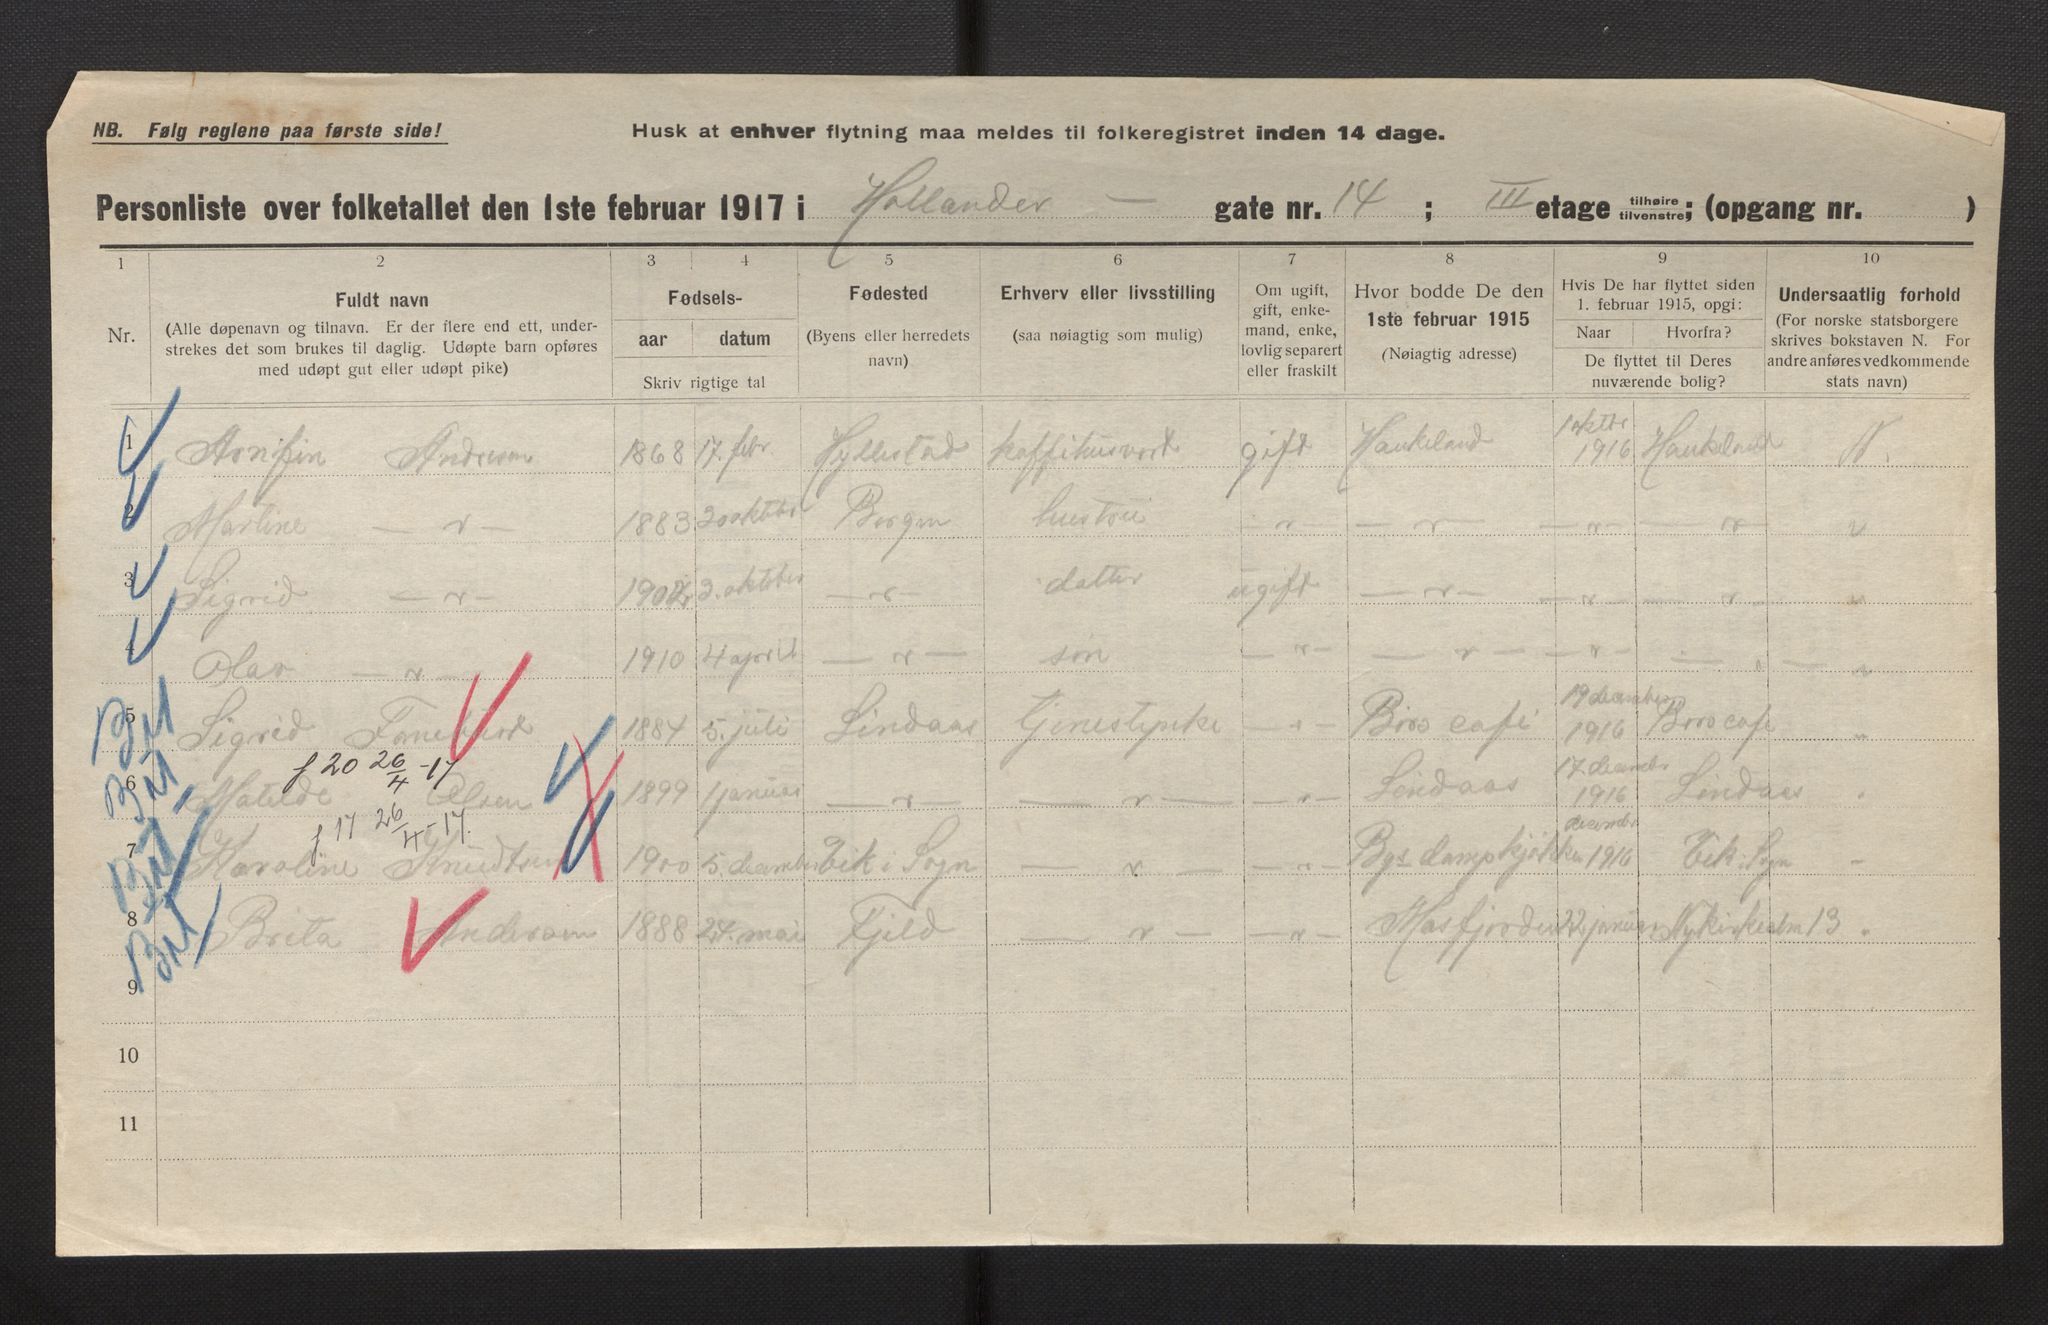 NB. Følg reglene paa første side!
Husk at enhver flytning maa meldes til folkeregistret inden 14 dage.
Personliste over folketallet den 1ste februar 1917 i Hollander — gate nr. 14 ; III etage tilhøire tilvenstre; (opgang nr. )
1 2 3 4 5 6 7 8 9 10
Nr.
Fuldt navn
(Alle døpenavn og tilnavn. Er der flere end ett, under-
strekes det som brukes til daglig. Udøpte barn opføres
med udøpt gut eller udøpt pike)
Fødsels-
aar datum
Skriv rigtige tal
Fødested
(Byens eller herredets
navn)
Erhverv eller livsstilling
(saa nøiagtig som mulig)
Om ugift,
gift, enke-
mand, enke,
lovlig separert
eller fraskilt
Hvor bodde De den
1ste februar 1915
(Nøiagtig adresse)
Hvis De har flyttet siden
1. februar 1915, opgi:
Naar Hvorfra?
De flyttet til Deres
nuværende bolig?
Undersaatlig forhold
(For norske statsborgere
skrives bokstaven N. For
andre anføres vedkommende
stats navn)
1 Andersen 1868 17. febr. Hyllestad kaffihusvert gift Haukeland 1 oktbr 1916 Haukeland N.
2 Martine — " — 1883 20 oktbr Bergen hustru — " — — " — — " — — " — "
3 Sigrid — " — 2. oktober — " — datter ugift — " — — " — — " — "
4 Olav — " — 1910 4 april — " — søn — " — — " — — " — — " — "
BM 5 Sigrid 1884 5. juli Lindaas tjenestepike — " — Børs café 19 december 1916 Børs cafe "
f 20 26/4 -17
BM 6 Matilde Olsen 1899 1 januar — " — — " — — " — Lindaas 17 decembr 1916 Lindaas "
f 17 26/4 -17.
BM 7 Karoline Knudtsen 1900 5. december Vik i Sogn — " — — " — Bgs dampkjøkken decembr 1916 Vik i Sogn "
BM 8 Brita Andersen 1888 24. mai Fjeld — " — — " — Masfjorden 22 januar Nykirkealm 13 "
9
10
11